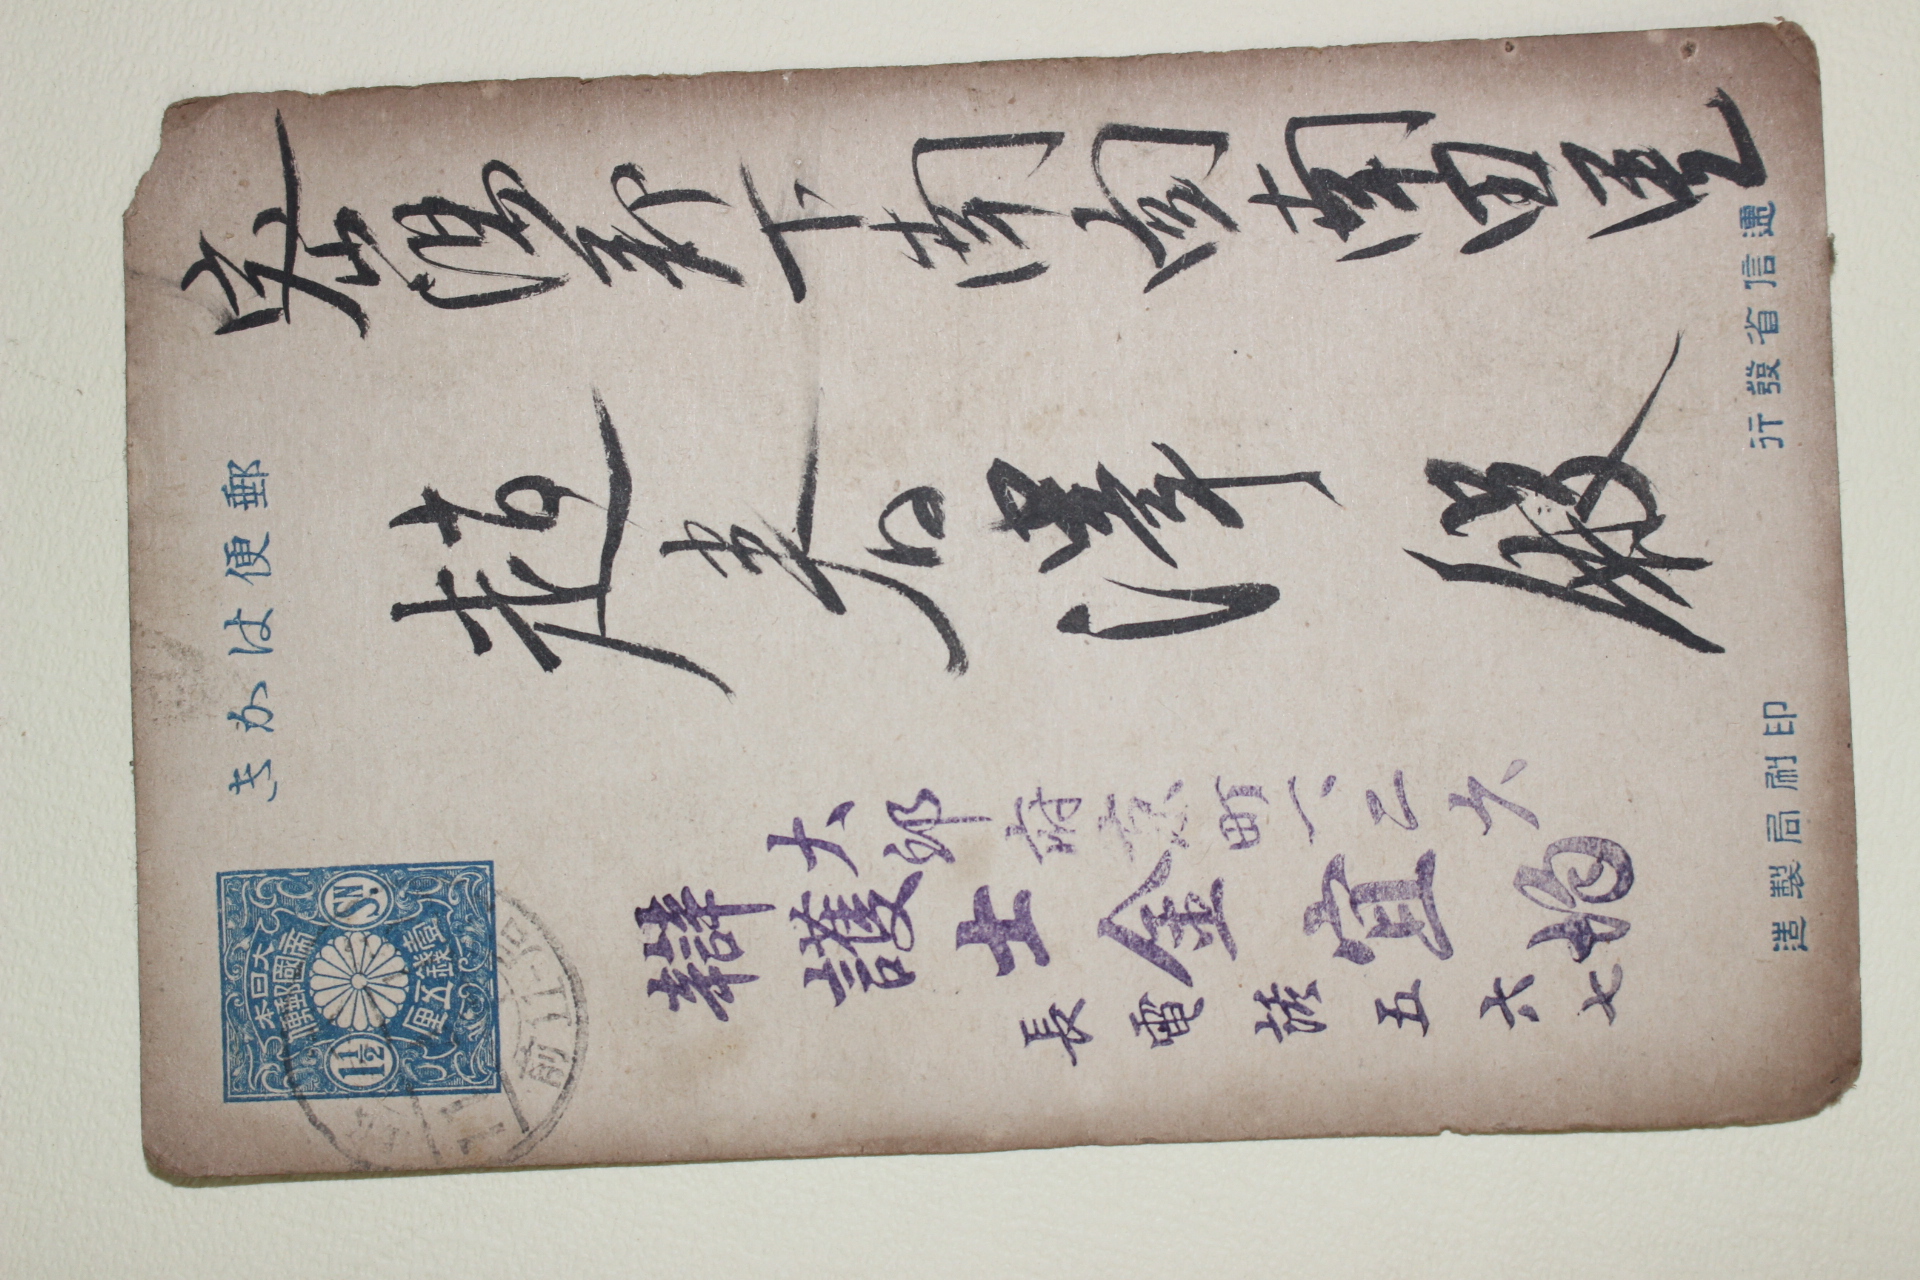 郵便はかき
大日本
帝國郵便
1½
SN.
壹錢五厘
前11-
密陽郡下南面南田里
趙春澤殿
大邱府京町一、二六
辯護士金宜均
長電話五六七
遞信省發行
印刷局製造